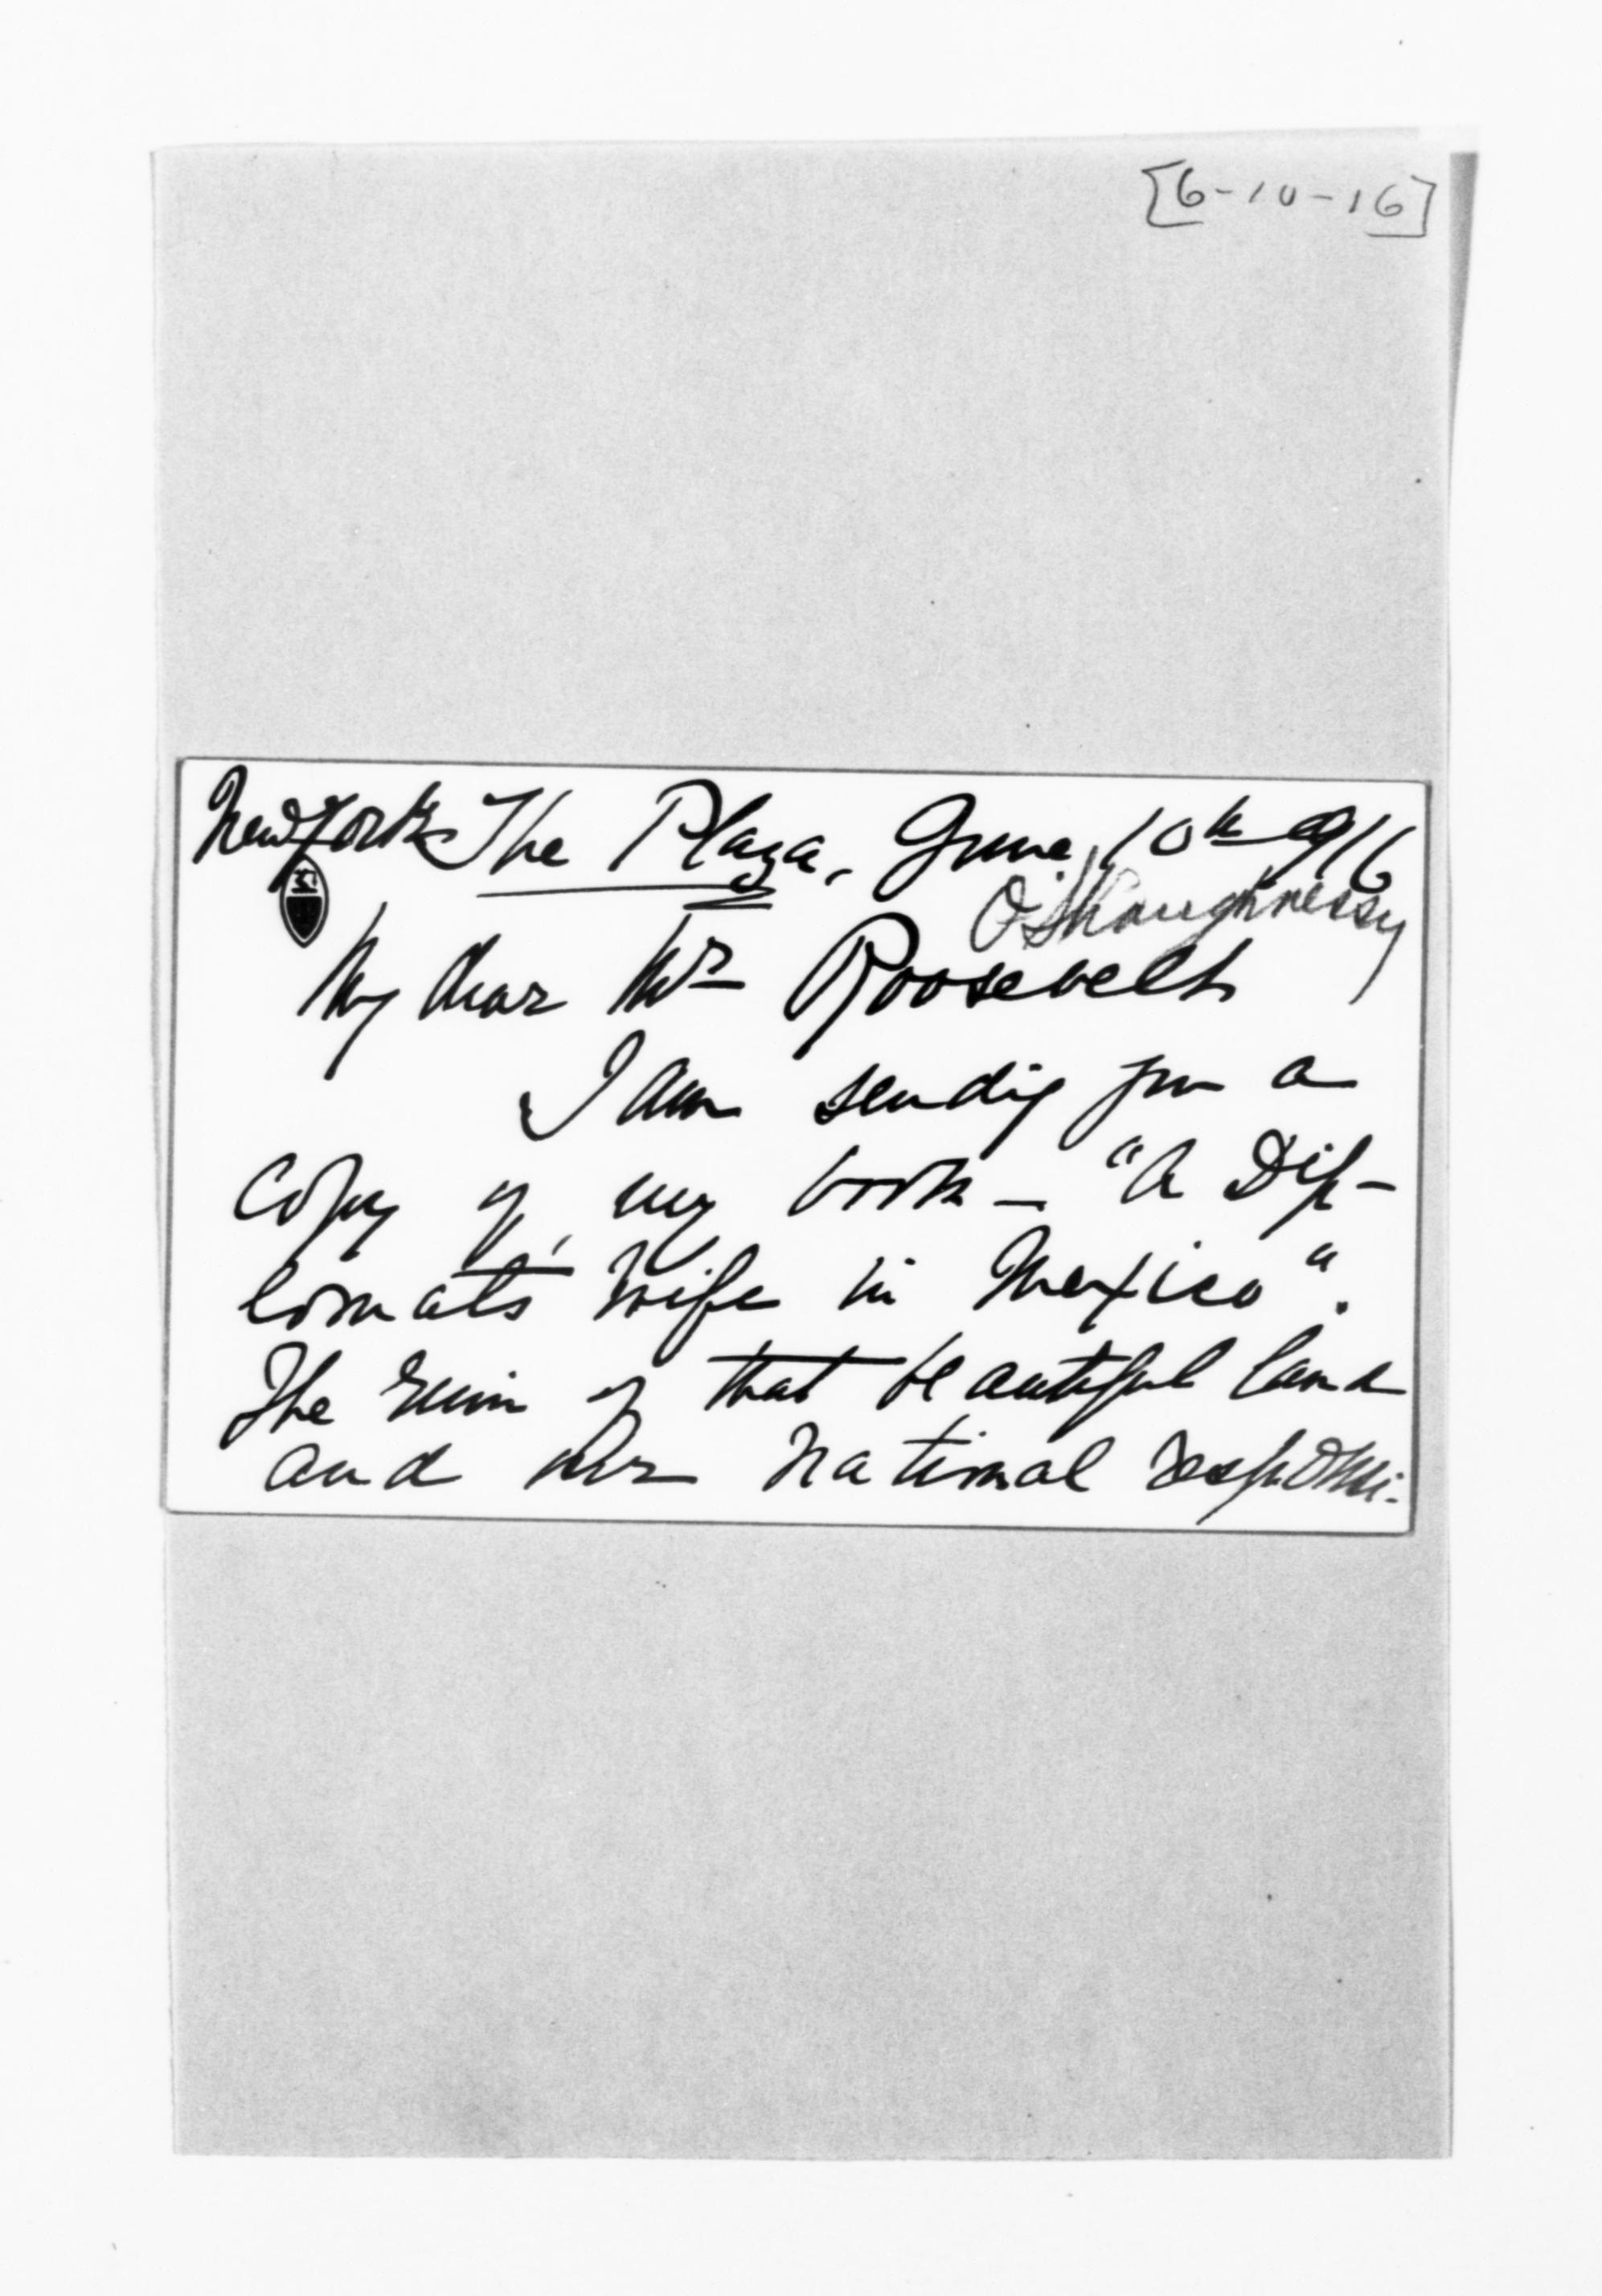 [6-10-16]
New York The Plaza, June 10th 1916
O'Shaughnessy
My dear Mr Roosevelt
I am sending you a
copy of my book — "A Dip-
lomat's Wife in Mexico".
The ruin of that beautiful land
and our national responsi-